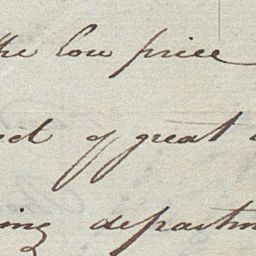 the low price
of great
departm